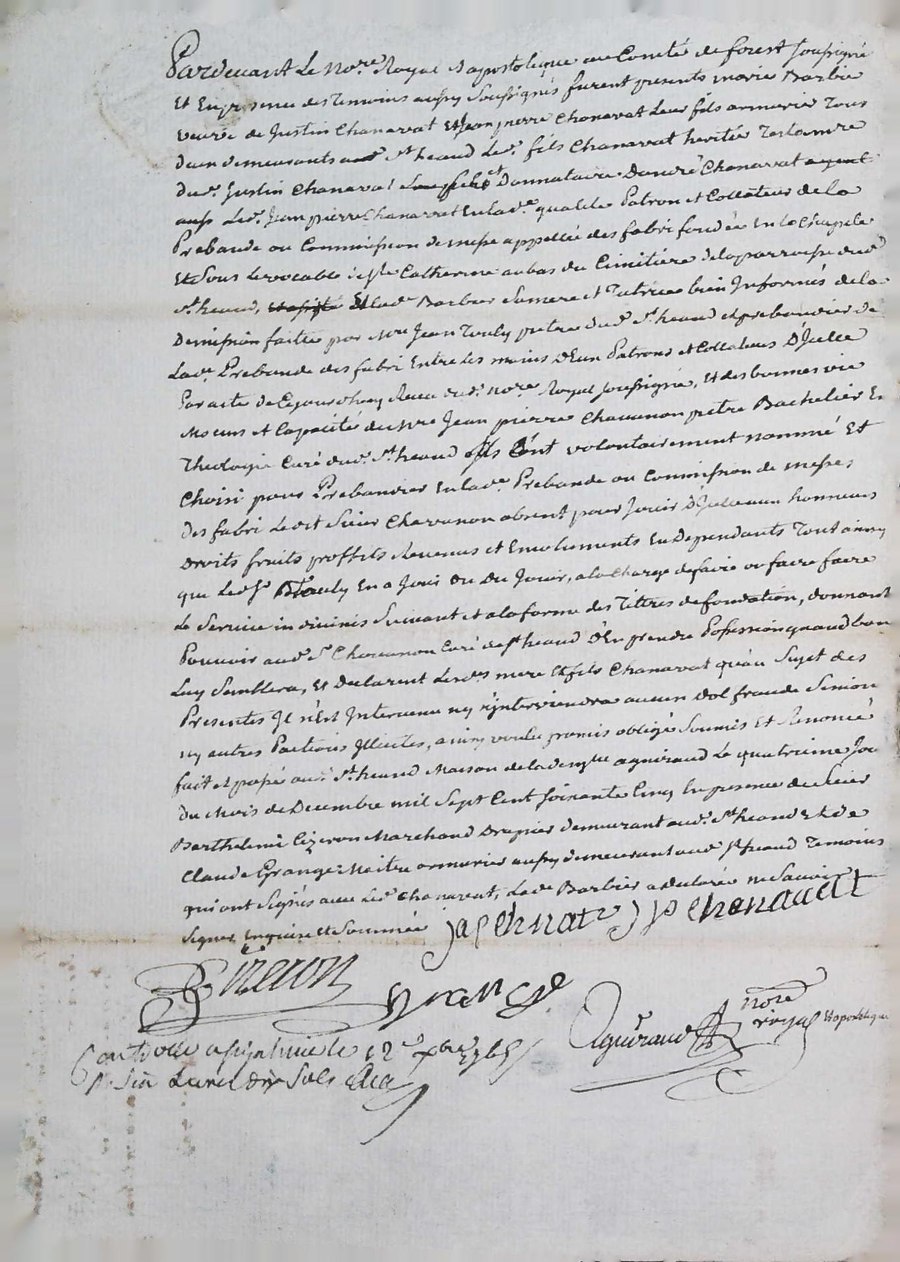 Pardevant Le No.re Royal & apostolique au Comté de forest soussigné
Et En presence des Temoins aussy Soussignés furent presents marie Barbier
veuve de Justin Chanavat et Jean pierre Chanavat Leur fils armurier Tous
deux demeurants St heand Led. fils Chanavat heritier Testamre
dud. Justin Chanavat et Donnataire D'andré Chanavat
Led. Jean pierre Chanavat En lad.e qualité Patron et Collateur de la
Prebande ou Commission de messe appellée des fabri fondée En la Chapelle
Et Sous Le vocable de Ste Catherine au bas du Cimitière de la parroisse dud
St heand, Et lad. Barbier Sa mere et Tutrice bien Informés de la
Demission faitte par Mre Jean Touly pretre dud. St heand et prebandier de
Lad. Prebande des fabri Entre Les mains D'Eux Patrons et Collateurs D'Icelle
Par acte de Cejourdhuy Receu dud. No.re Royal soussigné, Et des bonnes vie
Moeurs et Capacité de Mre Jean pierre Chavanon pretre Bachelier En
Theologie Curé dud. St heand Ils ont volontairement nommé Et
Choisi pour Prebandier En lad.e Prebande ou Commission de messes
des fabri Ledit Sieur Chavanon absent pour Jouir D'Icelle aux honneurs
Droits fruits proffets Revenus et Emoluments En Dependants Tout ainsy
que Led. Sr Touly En a Joui ou Du Jouir, a la Charge de faire ou faire faire
Le Service in divinis Suivant et a la forme des Titres de fondation, donnant
Pouvoir aud. Sr Chavanon Curé de St heand D'En prendre Possession quand bon
Luy Semblera, Et Declarent Lesd. mere Et fils Chanavat qu'au Sujet des
Presentes Il n'Est Intervenu ny n'interviendra aucun dol fraude Simonie
ny autres Pactions Illicites, ainsy voulu promis obligés Soumis Et Renoncé
fait et passé aud. St heand Maison de la aguiraud Le quatrieme Jour
du Mois de Decembre mil Sept Cent Soixante Cinq En presence du Sieur
Barthelemi Cizeron Marchand Drapier demeurant aud. St heand Et de
Claude Grange Maitre armurier aussy demeurant aud. St heand Temoins
qui ont Signés avec Led. Chanavat, Lad. Barbier a declaré ne Savoir
Signer Enquise et Sommée
j p Chenavat
Cizeron
Grange
Aguiraud nore royal & apostolique
Controllé a St hand le 12e xbre 1765